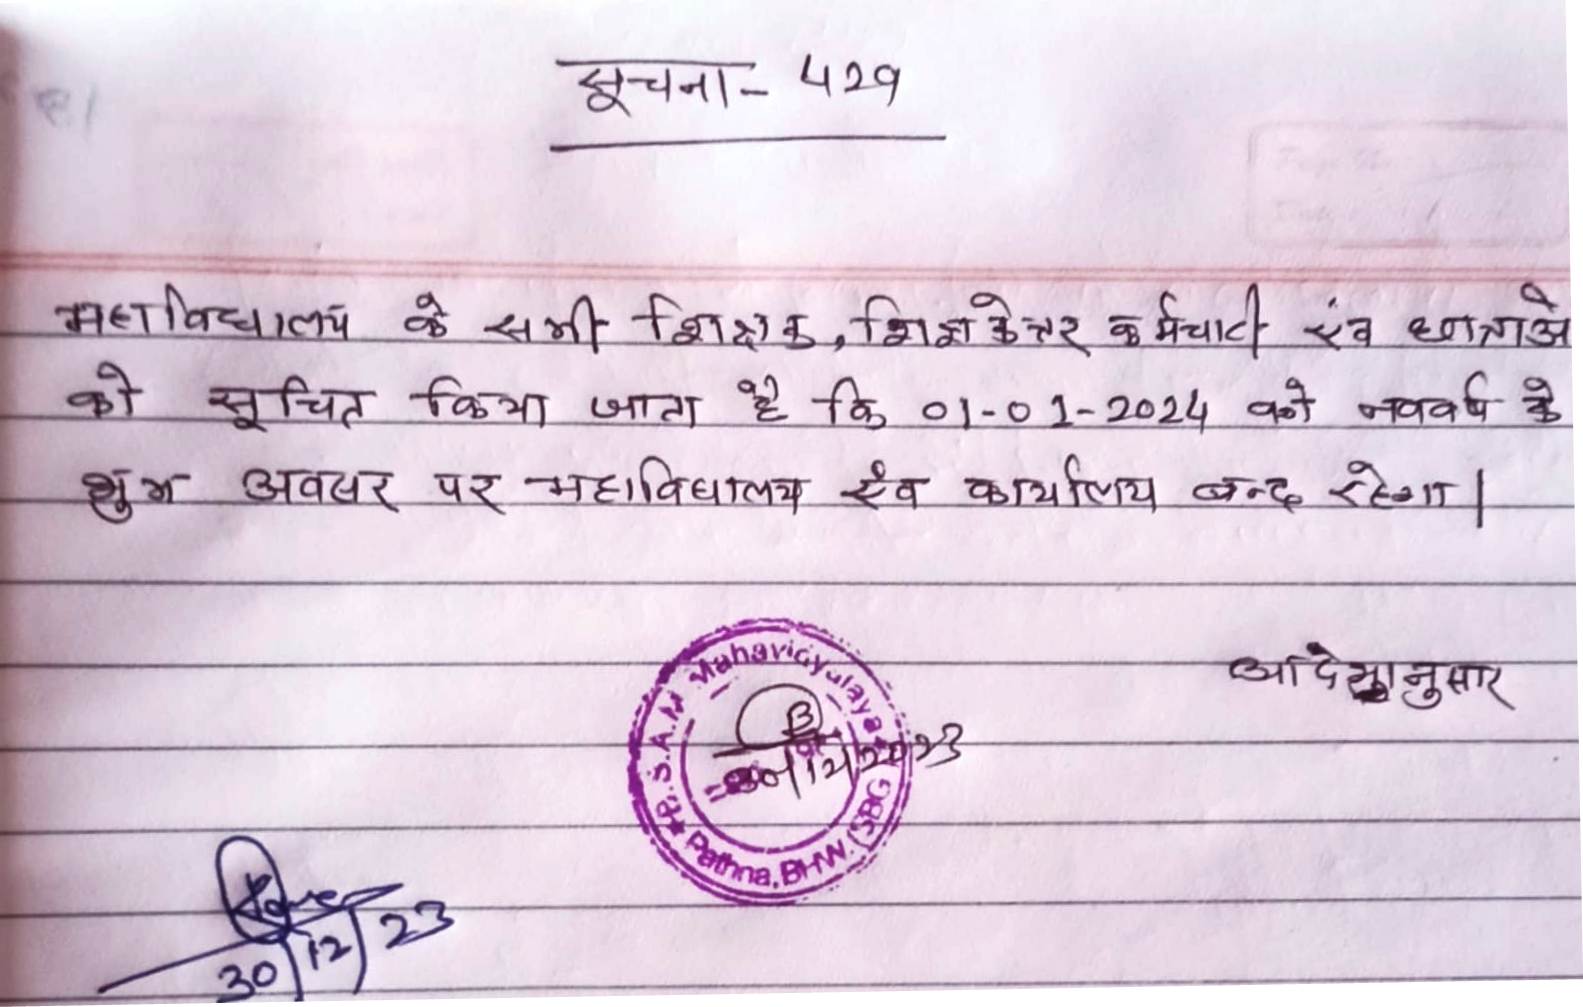 सूचना - 429
महाविद्यालय के सभी शिक्षक, शिक्षकेत्तर कर्मचारी एंव छात्राओ
को सूचित किया जाता है कि 01-01-2024 को नववर्ष के
शुभ अवसर पर महाविद्यालय एंव कार्यालय बन्द रहेगा।
आदेशानुसार
B.S.A.M Mahavidyalaya
30/12/2023
Pathna, BHW. (SBG
30/12/23